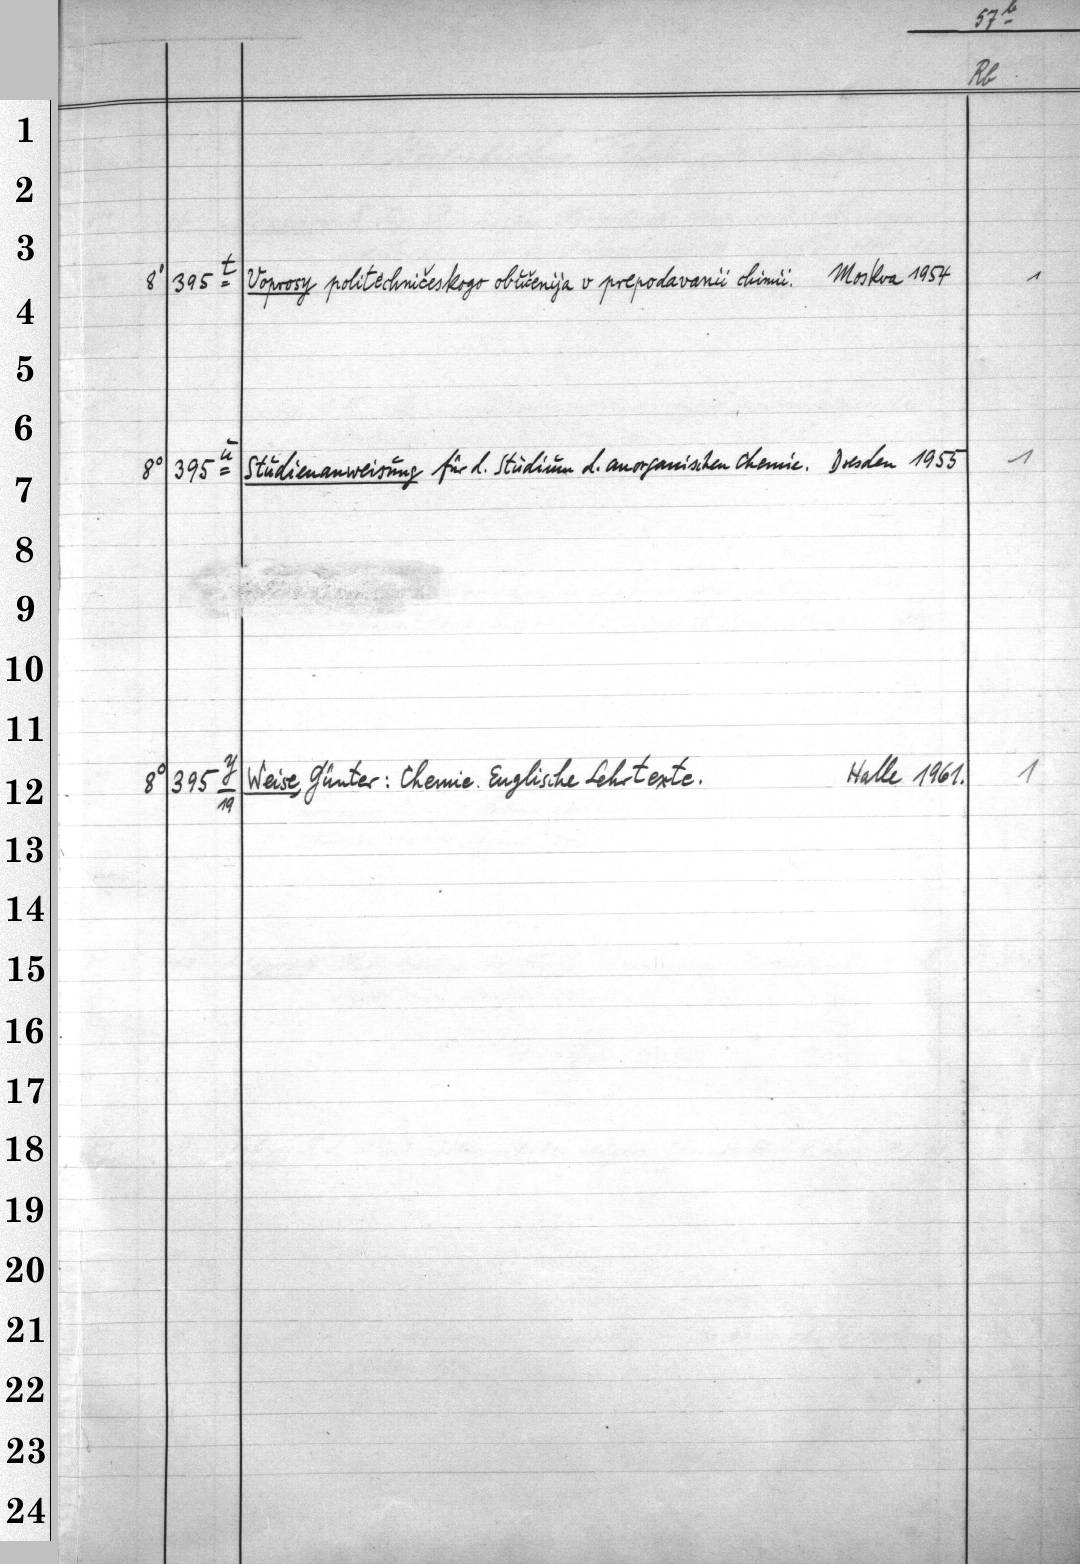 57b
Rb
1
2
3
8° 395 t Voprosy politechničeskogo obučenija v prepodavanii chimii. Moskva 1954 1
4
5
6
8° 395 u Studienanweisung für d. Studium d. anorganischen Chemie. Dresden 1955 1
7
8
9
10
11
8° 395 y/19 Weise, Günter: Chemie. Englische Lehrtexte. Halle 1961. 1
12
13
14
15
16
17
18
19
20
21
22
23
24